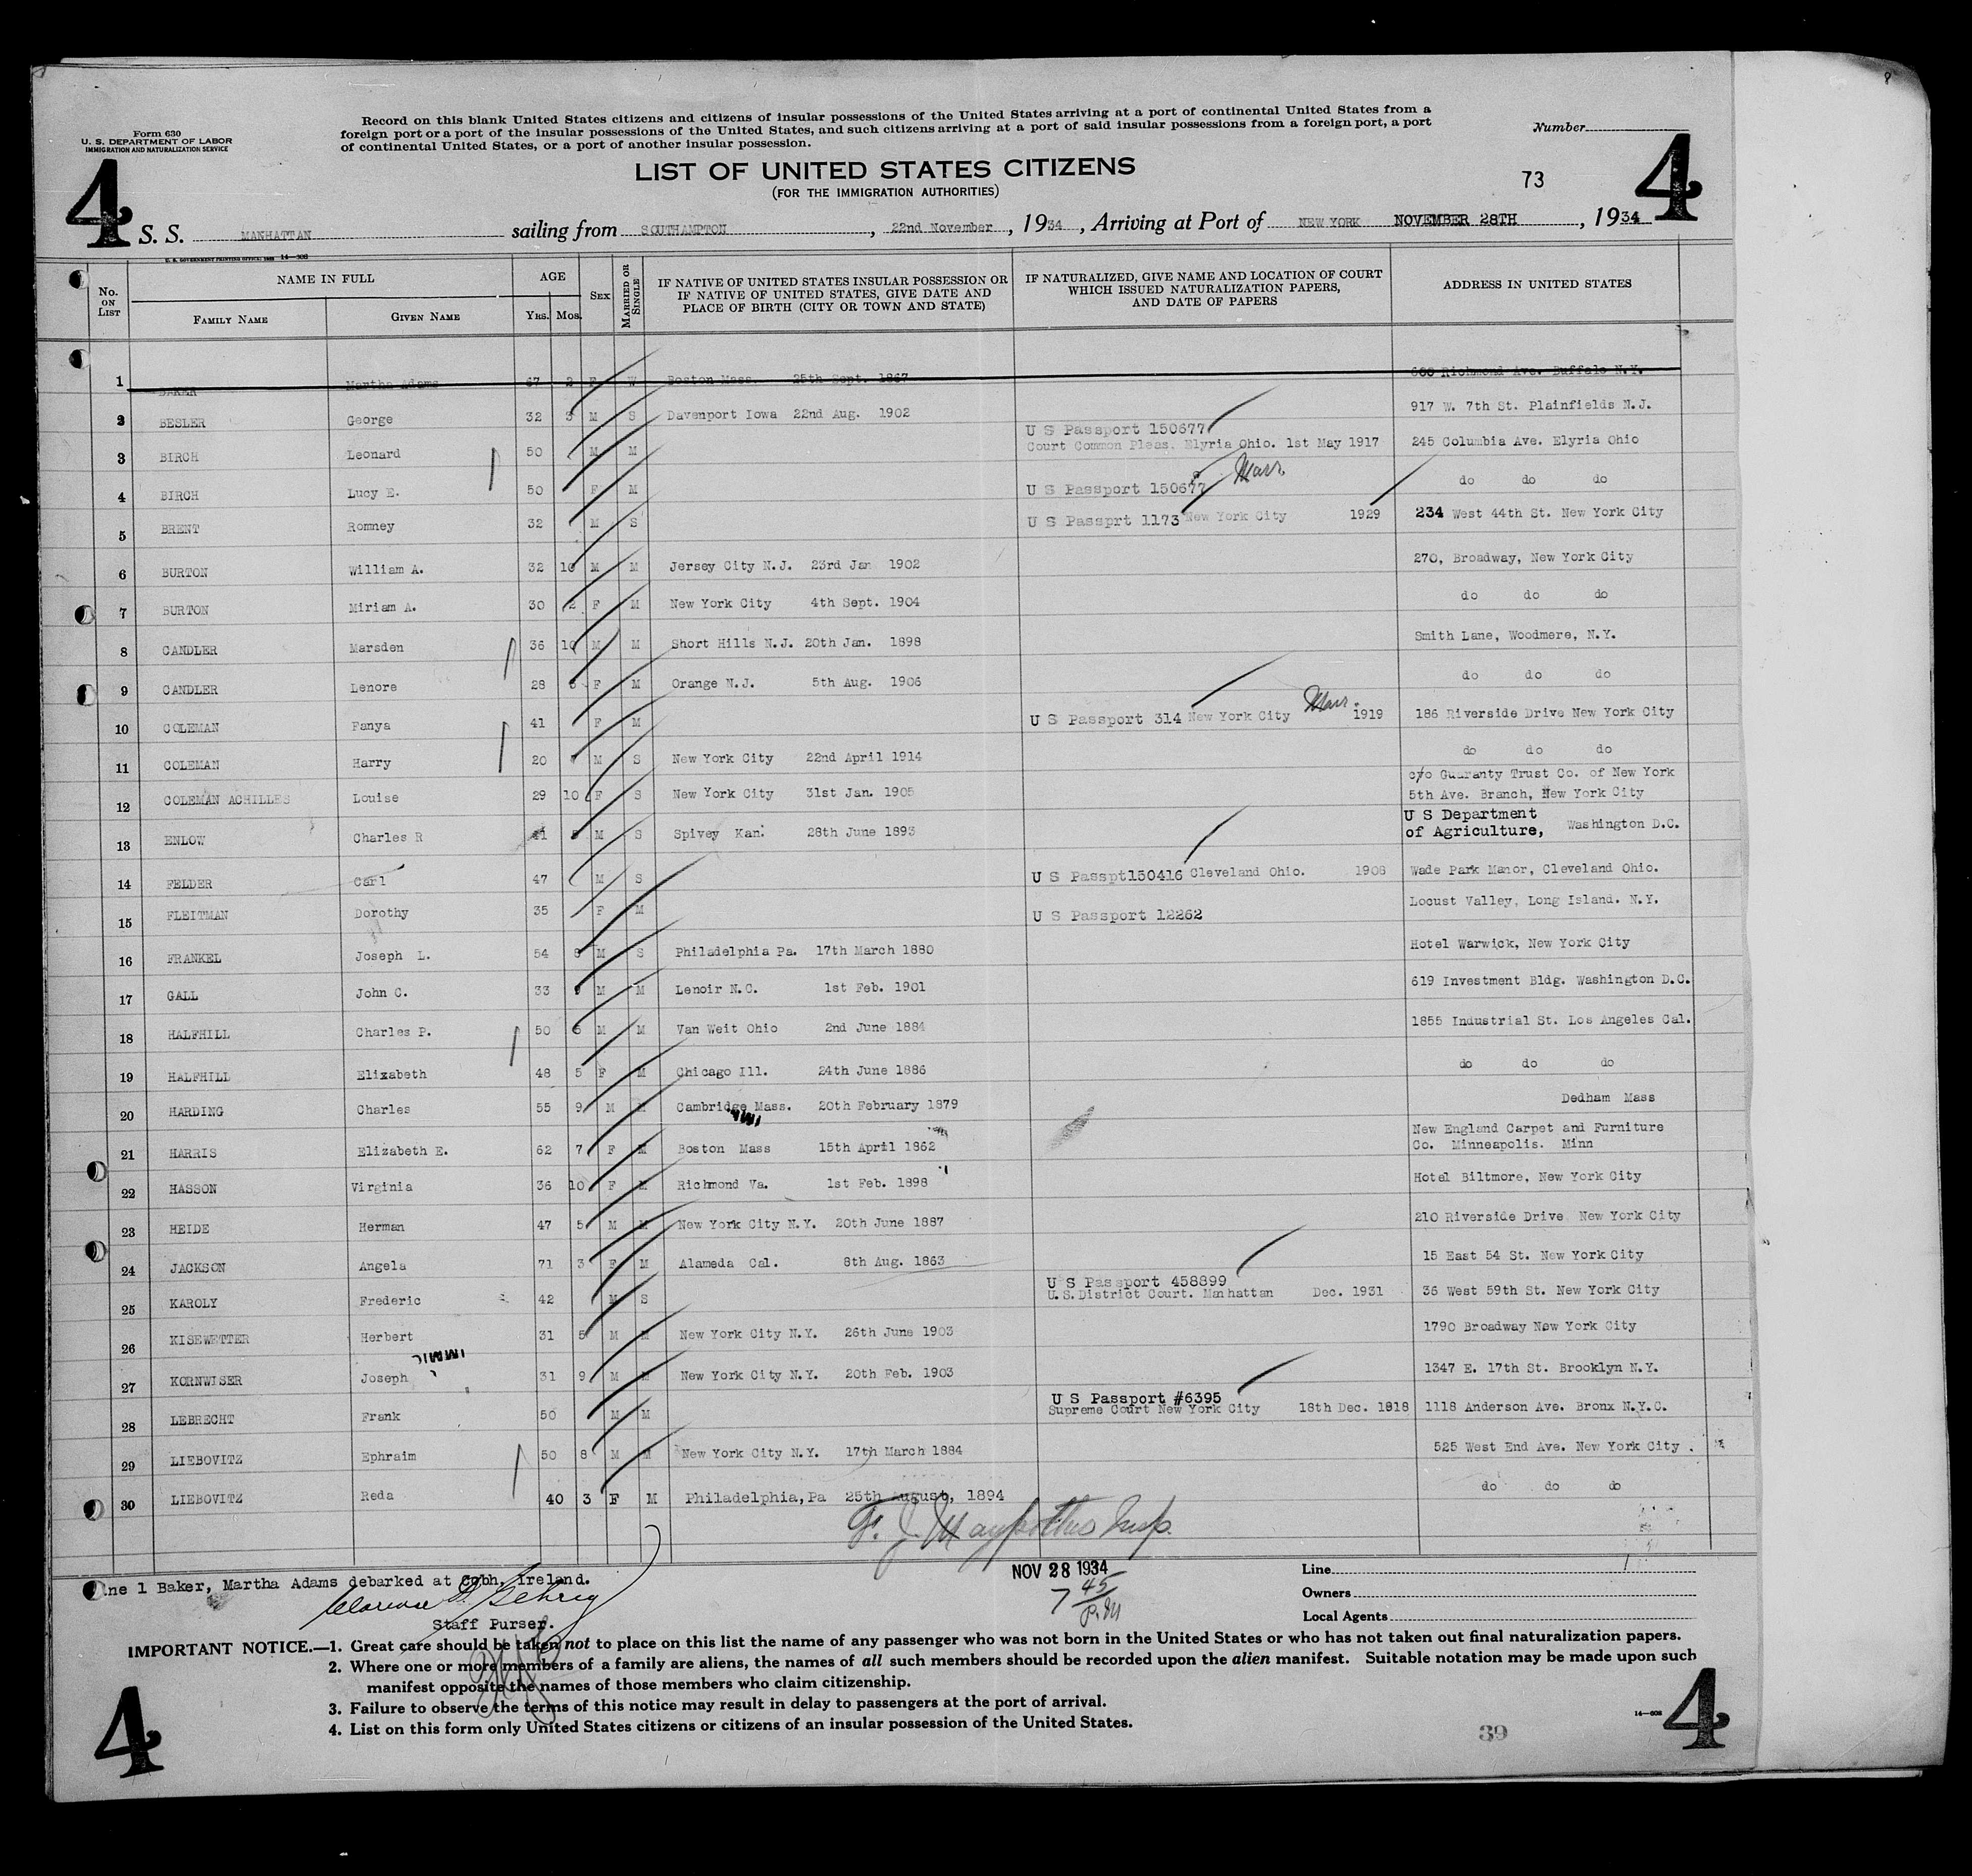 8
Form 630
U. S. DEPARTMENT OF LABOR
IMMIGRATION AND NATURALIZATION SERVICE
Record on this blank United States citizens and citizens of insular possessions of the United States arriving at a port of continental United States from a
foreign port or a port of the insular possessions of the United States, and such citizens arriving at a port of said insular possessions from a foreign port, a port
of continental United States, or a port of another insular possession.
Number
4 4
LIST OF UNITED STATES CITIZENS
(FOR THE IMMIGRATION AUTHORITIES)
73
S. S. MANHATTAN sailing from SOUTHAMPTON, 22nd November, 1934, Arriving at Port of NEW YORK NOVEMBER 28TH, 1934
U. S. GOVERNMENT PRINTING OFFICE: 14—606
No. ON LIST NAME IN FULL FAMILY NAME GIVEN NAME AGE YRS. MOS. SEX MARRIED OR SINGLE IF NATIVE OF UNITED STATES INSULAR POSSESSION OR IF NATIVE OF UNITED STATES, GIVE DATE AND PLACE OF BIRTH (CITY OR TOWN AND STATE) IF NATURALIZED, GIVE NAME AND LOCATION OF COURT WHICH ISSUED NATURALIZATION PAPERS, AND DATE OF PAPERS ADDRESS IN UNITED STATES
1 BAKER Martha Adams 67 2 F W Boston Mass. 25th Sept. 1867 Richmond Ave. Buffalo N.Y.
2 BESLER George 32 3 M S Davenport Iowa 22nd Aug. 1902 917 W. 7th St. Plainfields N.J.
3 BIRCH Leonard 50 M M U S Passport 150677 Court Common Pleas, Elyria Ohio. 1st May 1917 245 Columbia Ave. Elyria Ohio
4 BIRCH Lucy E. 50 F M U S Passport 150677 Marr. do do do
5 BRENT Romney 32 M S U S Passprt 1173 New York City 1929 234 West 44th St. New York City
6 BURTON William A. 32 10 M M Jersey City N.J. 23rd Jan 1902 270, Broadway, New York City
7 BURTON Miriam A. 30 2 F M New York City 4th Sept. 1904 do do do
8 CANDLER Marsden 36 10 M M Short Hills N.J. 20th Jan. 1898 Smith Lane, Woodmere, N.Y.
9 CANDLER Lenore 28 F M Orange N.J. 5th Aug. 1906 do do do
10 COLEMAN Fanya 41 F M U S Passport 314 New York City Marr. 1919 186 Riverside Drive New York City
11 COLEMAN Harry 20 M S New York City 22nd April 1914 do do do
12 COLEMAN ACHILLES Louise 29 10 F S New York City 31st Jan. 1905 c/o Guaranty Trust Co. of New York 5th Ave. Branch, New York City
13 ENLOW Charles R 41 M S Spivey Kan. 28th June 1893 U S Department of Agriculture, Washington D.C.
14 FELDER Carl 47 M S U S Passpt150416 Cleveland Ohio. 1908 Wade Park Manor, Cleveland Ohio.
15 FLEITMAN Dorothy 35 F M U S Passport 12262 Locust Valley, Long Island. N.Y.
16 FRANKEL Joseph L. 54 8 M S Philadelphia Pa. 17th March 1880 Hotel Warwick, New York City
17 GALL John C. 33 9 M M Lenoir N.C. 1st Feb. 1901 619 Investment Bldg. Washington D.C.
18 HALFHILL Charles P. 50 5 M M Van Weit Ohio 2nd June 1884 1855 Industrial St. Los Angeles Cal.
19 HALFHILL Elixabeth 48 5 F M Chicago Ill. 24th June 1886 do do do
20 HARDING Charles 55 9 M M Cambridge Mass. 20th February 1879 Dedham Mass
21 HARRIS Elizabeth E. 62 7 F M Boston Mass 15th April 1862 New England Carpet and Furniture Co. Minneapolis. Minn
22 HASSON Virginia 36 10 F M Richmond Va. 1st Feb. 1898 Hotel Biltmore, New York City
23 HEIDE Herman 47 5 M M New York City N.Y. 20th June 1887 210 Riverside Drive New York City
24 JACKSON Angela 71 3 F M Alameda Cal. 8th Aug. 1863 15 East 54 St. New York City
25 KAROLY Frederic 42 M S U S Passport 458899 U.S. District Court. Manhattan Dec. 1931 36 West 59th St. New York City
26 KISEWETTER Herbert 31 5 M M New York City N.Y. 26th June 1903 1790 Broadway New York City
27 KORNWISER Joseph 31 9 M M New York City N.Y. 20th Feb. 1903 1347 E. 17th St. Brooklyn N.Y.
28 LEBRECHT Frank 50 M M U S Passport #6395 Supreme Court New York City 18th Dec. 1918 1118 Anderson Ave. Bronx N.Y.C.
29 LIEBOVITZ Ephraim 50 8 M M New York City N.Y. 17th March 1884 525 West End Ave. New York City.
30 LIEBOVITZ Reda 40 3 F M Philadelphia, Pa 25th August, 1894 do do do
F. J. Insp.
ne 1 Baker, Martha Adams debarked at Cobh, Ireland.
Clarence Gehrig
Staff Purser.
NOV 28 1934
7 45 P.M
Line
Owners
Local Agents
IMPORTANT NOTICE.—1. Great care should be taken not to place on this list the name of any passenger who was not born in the United States or who has not taken out final naturalization papers.
2. Where one or more members of a family are aliens, the names of all such members should be recorded upon the alien manifest. Suitable notation may be made upon such
manifest opposite the names of those members who claim citizenship.
3. Failure to observe the terms of this notice may result in delay to passengers at the port of arrival.
4. List on this form only United States citizens or citizens of an insular possession of the United States.
14—606
39
4 4